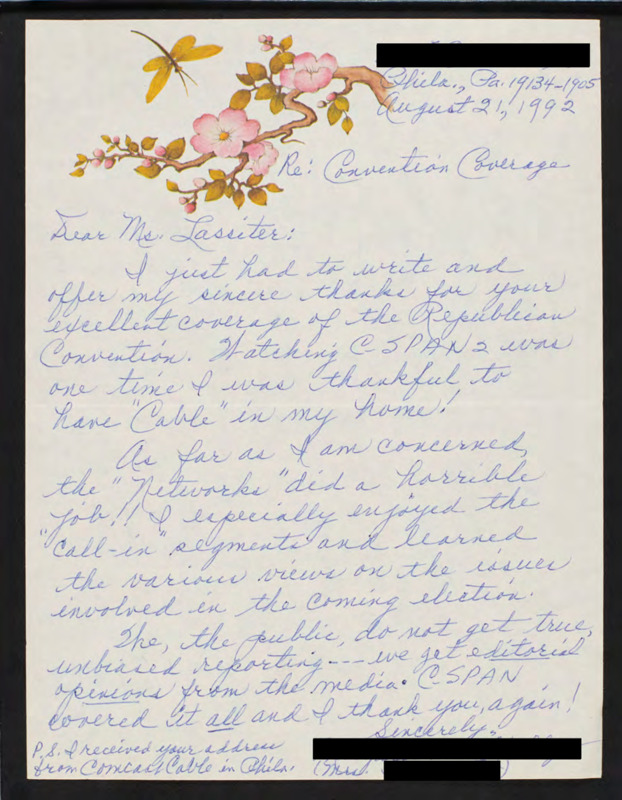 Phila., Pa. 19134-1905
August 21, 1992
Re: Convention Coverage
Dear Ms. Lassiter:
I just had to write and
offer my sincere thanks for your
excellent coverage of the Republican
Convention. Watching C-SPAN 2 was
one time I was thankful to
have "Cable" in my home!
As far as I am concerned,
the "Networks" did a horrible
"job"!! I especially enjoyed the
"call-in" segments and learned
the various views on the issues
involved in the coming election.
We, the public, do not get true,
unbiased reporting --- we get editorial
opinions from the media. C-SPAN
covered it all and I thank you, again!
Sincerely,
(Mrs. )
P.S. I received your address
from Comcast Cable in Phila.